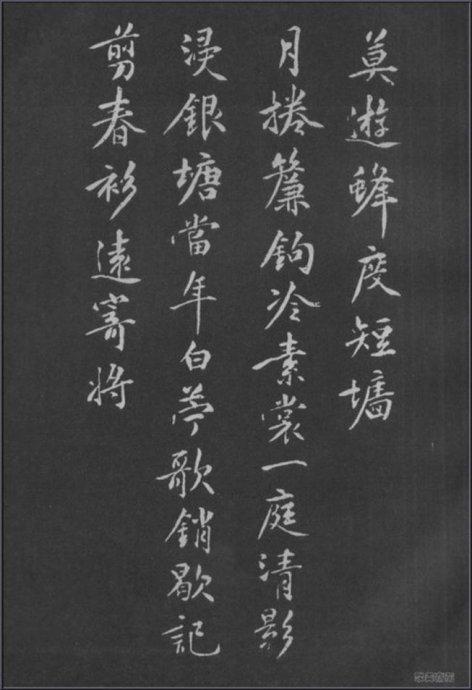 莫遊蜂度短墻
月捲簾鉤冷素裳一庭清影
浸銀塘當年白苧歌銷歇記
剪春衫遠寄將